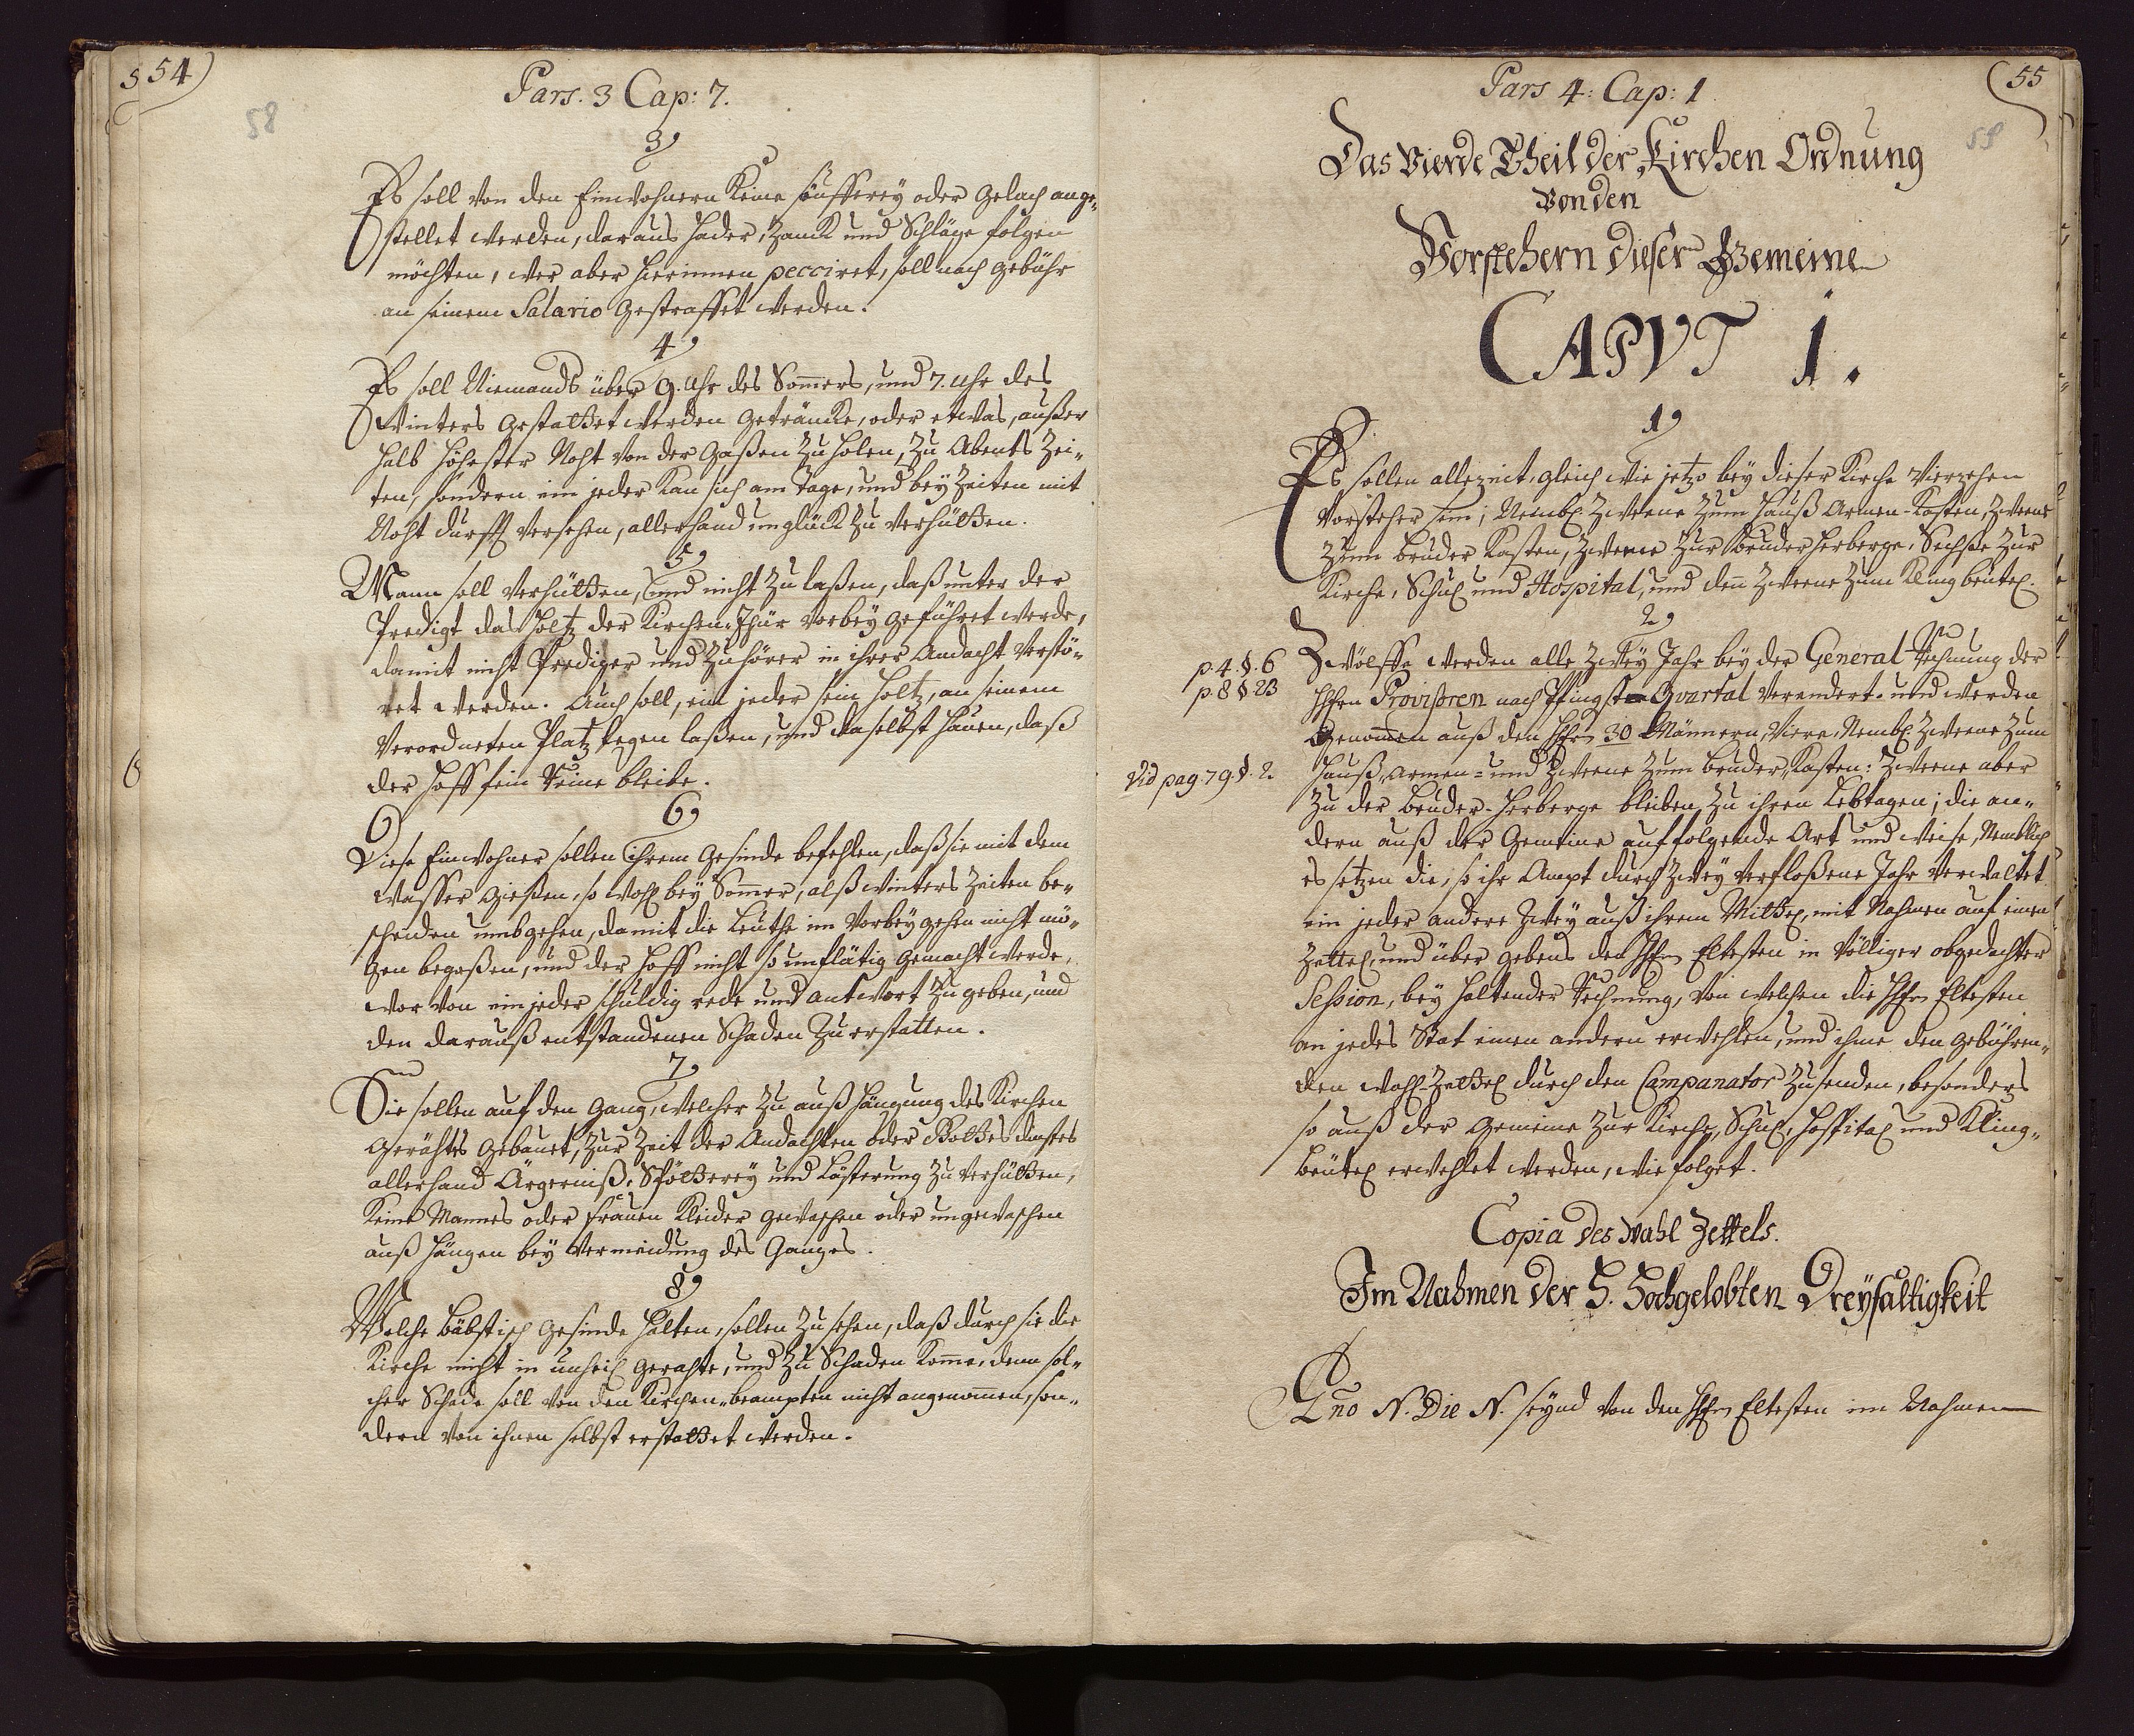 54)
58
Pars. 3 Cap: 7.
3,
Es soll von den Einwohnern Keine säufferey oder Gelach ange„
stellet werden, daraus Hader, Zanck und Schläge folgen
möchten, wer aber hierinnen pecciret, soll nach gebühr
an seinem Salario gestraffet werden.
4,
Es soll Niemands über 9. Uhr des Som̄ers, und 7. Uhr des
Winters gestattet werden Geträncke, oder etwas, außer
halb höhester Noht von der Gaßen zu holen, zu Abents Zei„
ten, sondern ein jeder kan sich am Tage, und bey Zeiten mit
Noht durfft versehen, allerhand unglück zu verhütten.
5,
Mann soll verhütten, und nicht zu laßen, daß unter der
Predigt das Holtz der Kirchen-Thür vorbey geführet werde,
damit nicht Prediger und Zuhörer in ihrer Andacht verstö„
ret werden. Auch soll, ein jeder sein Holtz, an seinem
verordneten Platz legen laßen, und daselbst hauen, daß
der Hoff fein Reine bleibe.
6,
Diese Einwohner sollen ihrem Gesinde befehlen, daß sie mit dem
Wasser gießen, so wohl bey Som̄er, alß Winters Zeiten be„
scheiden umbgehen, damit die Leuthe im Vorbeygehen nicht mö„
gen begoßen, und der Hoff nicht so unflätig gemacht werde,
wor von ein jeder schuldig rede und antwort zu geben, und
den darauß entstandenen Schaden zu erstatten.
7,
Sie sollen auf den Gang, welcher zu auß hängung des Kirchen
gerähtes gebauet, zur Zeit der Andachten oder Gottes dinstes
allerhand Ärgerniß, Spötterey und Lästerung zu verhütten,
keine Mannes oder frauen Kleider gewaschen oder ungewaschen
auß hängen bey Vermeidung des Ganges.
8,
Welche bäbstisch gesinde halten, sollen zu sehen, daß durch sie die
Kirche nicht in unheil gerahte, und zu Schaden kom̄e, denn sol„
cher Schade soll von den Kirchen-beampten nicht angenom̄en, son„
dern von ihnen selbst erstattet werden.
(55
Pars 4: Cap: 1
Das Vierde Theil der Kirchen Ordnung
Von den
Vorstehern dieser Gemeine
CAPVT 1.
1,
Es sollen allezeit, gleich wie jetzo bey dieser Kirche vierzehen
Vorsteher sein; Nembl. Zweene zum Hauß Armen-Kasten, Zweene
zum bruder Kasten, Zweene zur Bruderherberge, Sechße zur
Kirche, Schul und Hospital, und den̄ Zweene zum Klingbeutel.
2,
Zwölffe werden alle zwey Jahr bey der General Rechnung der
p. 4 §. 6
p. 8 § 23
HHrn Provisoren nach Pfingst Qvartal verendert, und werden
genom̄en auß den HHrn 30 Männern, Viere, Nembl. Zweene zum
Vid pag. 79 §. 2.
Hauß-armen- und Zweene zum bruder-Kasten: Zweene aber
zu der bruder-Herberge bleiben zu ihren Lebtagen; die an„
dern auß der Gemeine auff folgende Art und weise, Nemblich
es setzen die, so ihr Ampt durch zwey verfloßene Jahr verwaltet
ein jeder andere zwey auß ihrem Mittel, mit Nahmen auf einen
Zettel, und über gebens den HHrn Eltesten in völliger obgedachter
Session, bey haltender Rechnung, von welchen die HHrn Eltesten
an jedes Stat einen andern erwehlen, und ihme den gebühren„
den wahl-Zettel durch den Campanator zusenden, besonders
so auß der Gemeine zur Kirche, Schul, Hospital und Kling„
beutel erwehlet werden, wie folget.
Copia des Wahl Zettels.
Im Nahmen der H. Hochgelobten Dreyfaltigkeit
Año N. Die N. seynd von den HHrn Eltesten im Nahmen